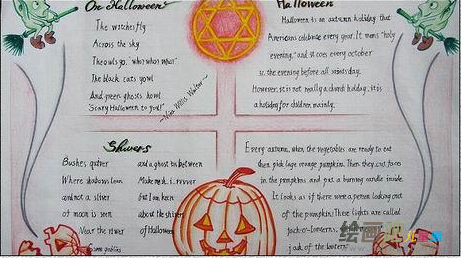 On Halloween
The witches fly
Across the sky
The owls go, "who! who! who!"
The black cats yowl
And green ghosts howl
"Scary Halloween to you!"
~Nina Willis Walter~
Halloween
Halloween is an autumn holiday that
Americans celebrate every year. It means "holy
evening," and it comes every october
, the evening before all saints day.
However, it is not really a church holiday, it is
a holiday for children mainly.
Shivers
Bushes quiver and a ghost in between
Where shadows lean Make me shiver
and not a sliver but I am keen
of moon is seen about the shivers
Near the river of Halloween.
Goblins
Every autumn, when the vegetables are ready to eat
then pick large orange pumpkins. Then they cut faces
in the pumpkins and put a burning candle inside.
It looks as if there were a person looking out
of the pumpkin! These lights are called
jack-o'-lanterns,
jack of the lantern
绘画